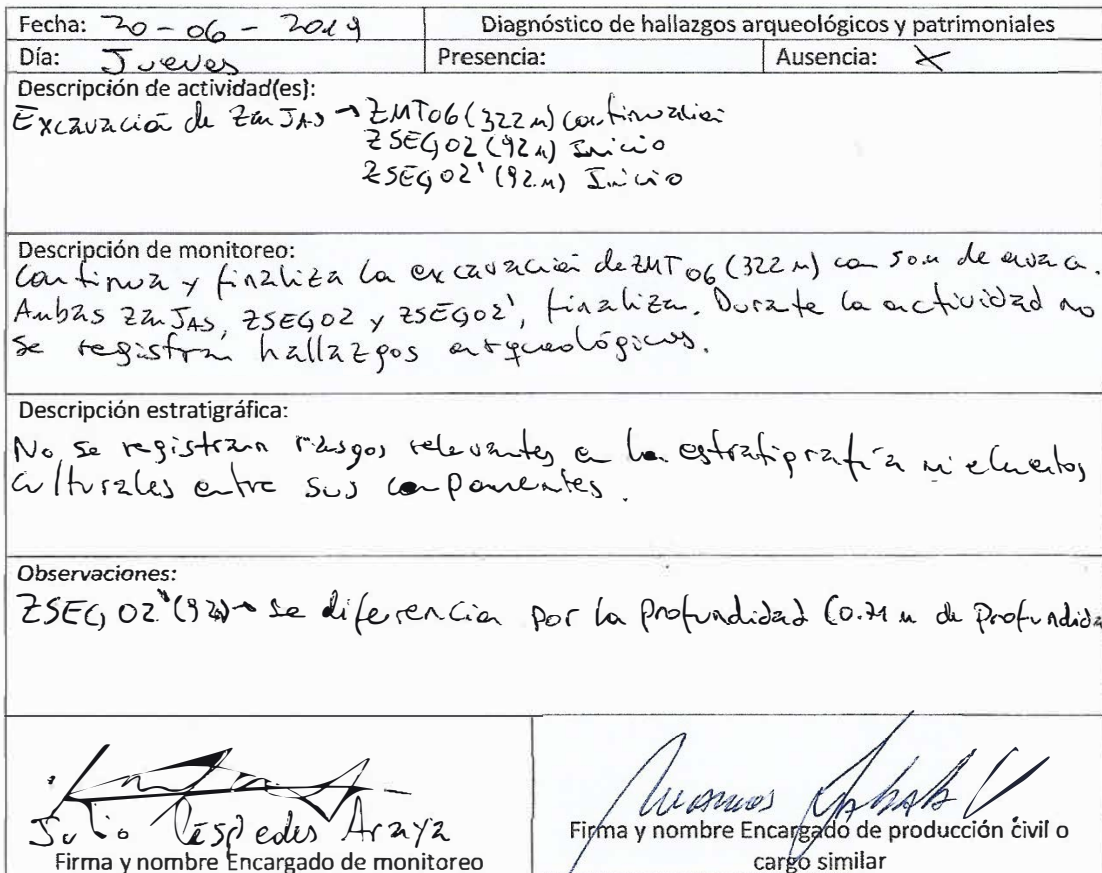 Fecha: 20-06-2019 Diagnóstico de hallazgos arqueológicos y patrimoniales
Día: Jueves Presencia: Ausencia: X
Descripción de actividad(es):
Excavación de ZanJAS → ZMT06 (322 m) continuación
ZSEG02 (92 m) Inicio
ZSEG02' (92 m) Inicio
Descripción de monitoreo:
Continua y finaliza la excavación de ZMT06 (322 m) con 50 m de avance.
Ambas ZanJAS, ZSEG02 y ZSEG02', finalizan. Durante la actividad no
se registran hallazgos arqueológicos.
Descripción estratigráfica:
No se registran rasgos relevantes en la estratigrafía ni elementos
culturales entre sus componentes.
Observaciones:
ZSEG02' (92) → se diferencia por la profundidad (0.71 m de Profundida
Julio Céspedes Araya
Firma y nombre Encargado de monitoreo
Firma y nombre Encargado de producción civil o
cargo similar